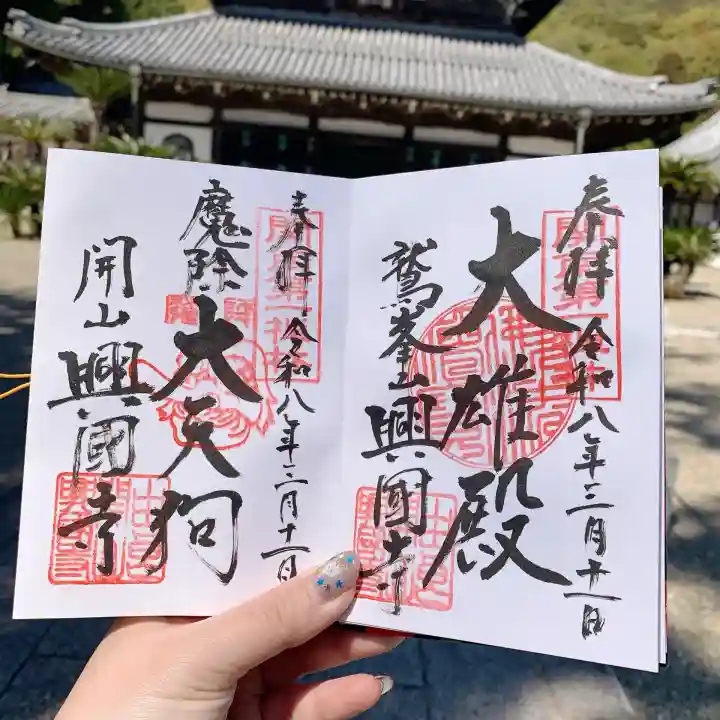 奉拝 令和八年三月十一日
大雄殿
鷲峯山 興國寺
奉拝 令和八年三月十一日
魔除 大天狗
開山 興國寺